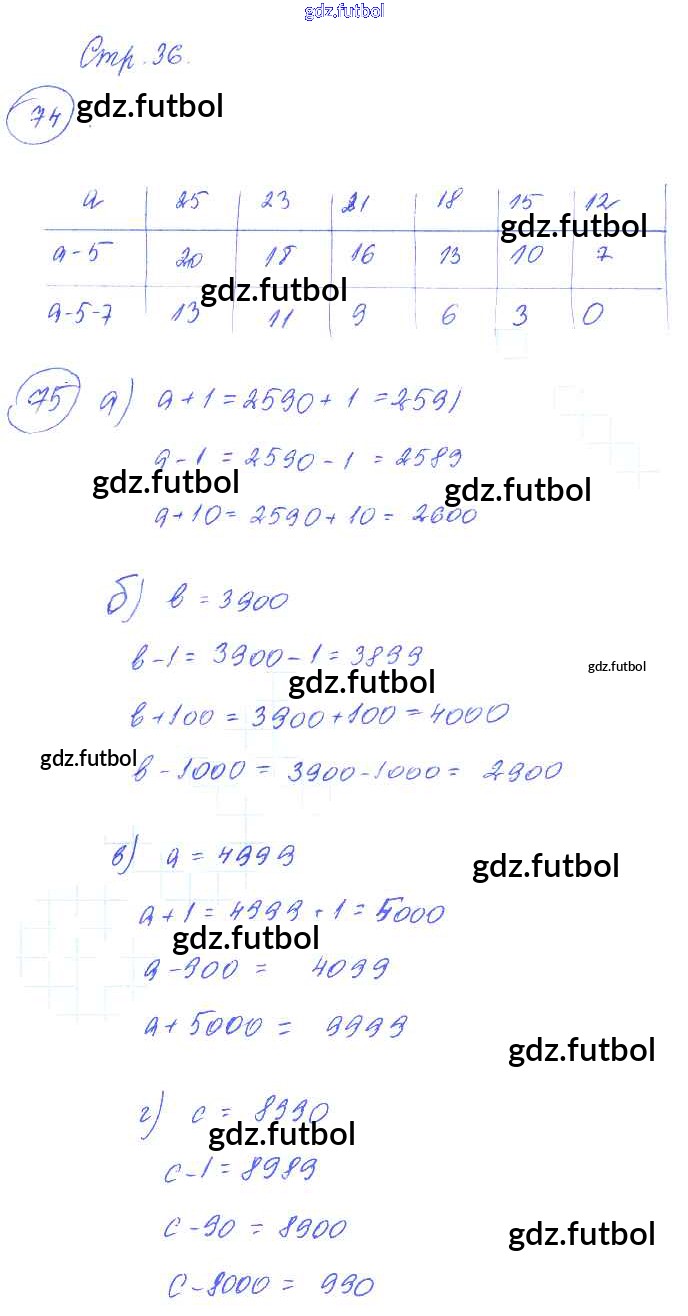 gdz.futbol
Стр. 36.
74 gdz.futbol
a 25 23 21 18 15 12
gdz.futbol
a-5 20 18 16 13 10 7
gdz.futbol
a-5-7 13 11 9 6 3 0
75 а) a+1=2590+1=2591
a-1=2590-1=2589
gdz.futbol gdz.futbol
a+10=2590+10=2600
б) в=3900
в-1=3900-1=3899
gdz.futbol
gdz.futbol
в+100=3900+100=4000
gdz.futbol
в-1000=3900-1000=2900
в) a=4999
gdz.futbol
a+1=4999+1=5000
gdz.futbol
a-900= 4099
a+5000= 9999
gdz.futbol
г) c= 8990
gdz.futbol
c-1=8989
c-90=8900
gdz.futbol
c-8000= 990